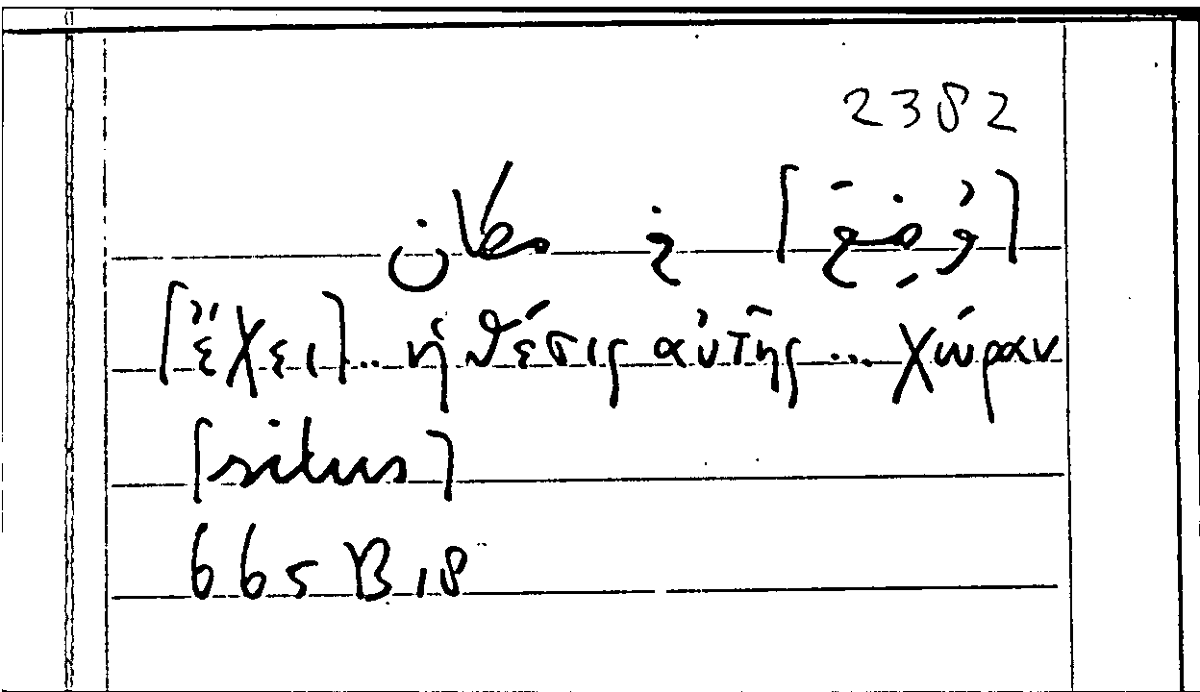 2382
[وُضِعَ] في مكان
[ἔχει]... ἡ θέσις αὐτῆς ... χώραν
[situs]
665 B 18